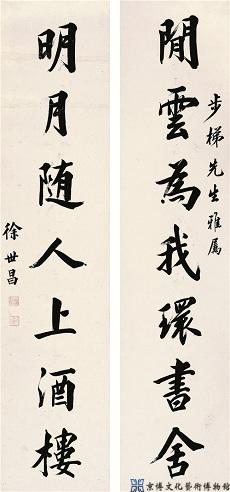 步梯先生雅屬
閒雲為我環書舍
明月随人上酒樓
徐世昌
京博文化藝術博物館